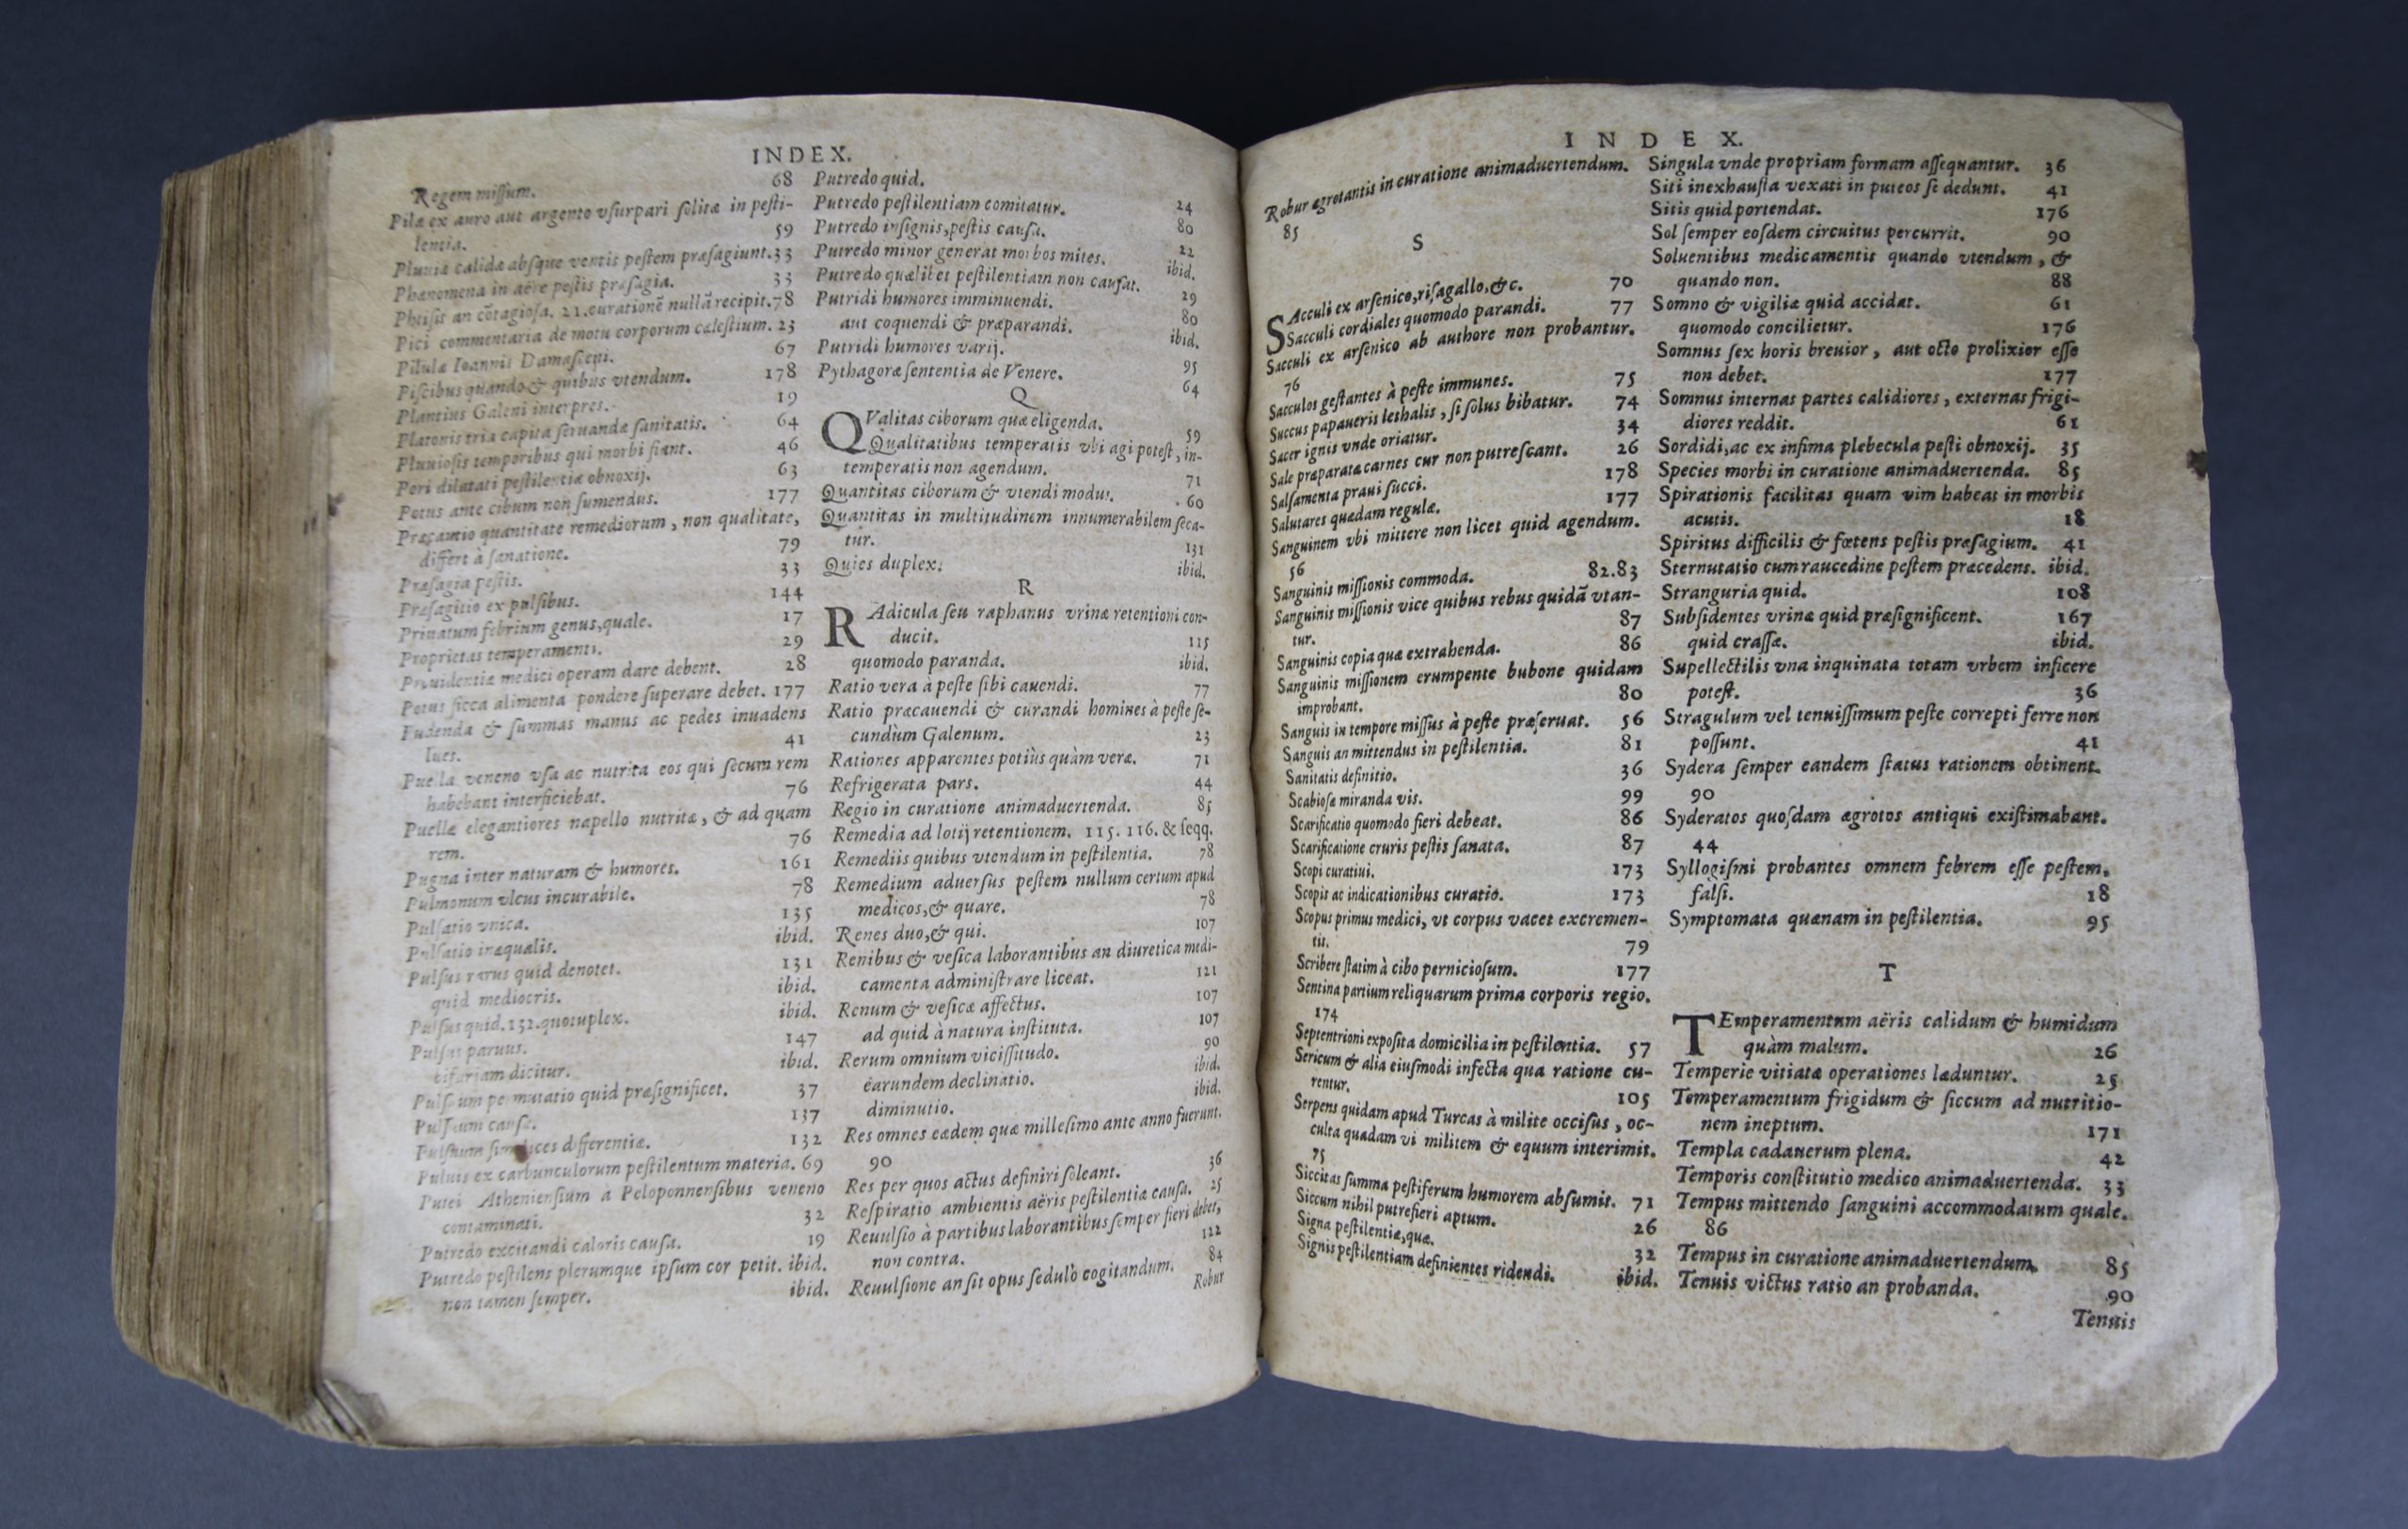 INDEX.
Regem missum. 68
Pilæ ex auro aut argento vsurpari solitæ in pesti-
lentia. 59
Pluuiæ calidæ absque ventis pestem præsagiunt. 33
Phænomena in aëre pestis præsagia. 33
Phtisis an cõtagiosa. 21. curationẽ nullã recipit. 78
Pici commentaria de motu corporum cælestium. 23
Pilulæ Ioannis Damasceni. 67
Piscibus quando & quibus vtendum. 178
Plantius Galeni interpres. 19
Platonis tria capita seruandæ sanitatis. 64
Pluuiosis temporibus qui morbi fiant. 46
Pori dilatati pestilentiæ obnoxij. 63
Potus ante cibum non sumendus. 177
Præcautio quantitate remediorum, non qualitate,
differt à sanatione. 79
Præsagia pestis. 33
Præsagitio ex pulsibus. 144
Priuatum febrium genus, quale. 17
Proprietas temperamenti. 29
Prouidentiæ medici operam dare debent. 28
Potus sicca alimenta pondere superare debet. 177
Pudenda & summas manus ac pedes inuadens
lues. 41
Puella veneno vsa ac nutrita eos qui secum rem
habebant interficiebat. 76
Puellæ elegantiores napello nutritæ, & ad quam
rem. 76
Pugna inter naturam & humores. 161
Pulmonum vlcus incurabile. 78
Pulsatio vnica. 135
Pulsatio inæqualis. ibid.
Pulsus rarus quid denotet. 131
quid mediocris. ibid.
Pulsus quid. 132. quotuplex. ibid.
Pulsus paruus. 147
bifariam dicitur. ibid.
Pulsuum permutatio quid præsignificet. 37
Pulsuum causæ. 137
Pulsuum simplices differentiæ. 132
Puluis ex carbunculorum pestilentum materia. 69
Putei Atheniensium à Peloponnensibus veneno
contaminati. 32
Putredo excitandi caloris causa. 19
Putredo pestilens plerumque ipsum cor petit. ibid.
non tamen semper. ibid.
Putredo quid.
Putredo pestilentiam comitatur. 24
Putredo insignis, pestis causa. 80
Putredo minor generat morbos mites. 22
Putredo quælibet pestilentiam non causat. ibid.
Putridi humores imminuendi. 29
aut coquendi & præparandi. 80
Putridi humores varij. ibid.
Pythagoræ sententia de Venere. 95
64
Q
QValitas ciborum quæ eligenda.
Qualitatibus temperatis vbi agi potest, in- 59
temperatis non agendum.
Quantitas ciborum & vtendi modus. 71
Quantitas in multitudinem innumerabilem seca- 60
tur. 131
Quies duplex. ibid.
R
RAdicula seu raphanus vrinæ retentioni con-
ducit. 115
quomodo paranda. ibid.
Ratio vera à peste sibi cauendi. 77
Ratio præcauendi & curandi homines à peste se-
cundùm Galenum. 23
Rationes apparentes potiùs quàm veræ. 71
Refrigerata pars. 44
Regio in curatione animaduertenda. 85
Remedia ad lotij retentionem. 115. 116. & seqq.
Remediis quibus vtendum in pestilentia. 78
Remedium aduersus pestem nullum certum apud
medicos, & quare. 78
Renes duo, & qui. 107
Renibus & vesica laborantibus an diuretica medi-
camenta administrare liceat. 121
Renum & vesicæ affectus. 107
ad quid à natura instituta. 107
Rerum omnium vicissitudo. 90
earundem declinatio. ibid.
diminutio. ibid.
Res omnes eædem quæ millesimo ante anno fuerunt.
90
Res per quos actus definiri soleant. 36
Respiratio ambientis aëris pestilentiæ causa. 25
Reuulsio à partibus laborantibus semper fieri debet,
non contra. 122
Reuulsione an sit opus sedulò cogitandum. 84
Robur
INDEX.
Robur ægrotantis in curatione animaduertendum.
85
S
SAcculi ex arsenico, risagallo, &c. 70
Sacculi cordiales quomodo parandi. 77
Sacculi ex arsenico ab authore non probantur.
76
Sacculos gestantes à peste immunes. 75
Succus papaueris lethalis, si solus bibatur. 74
Sacer ignis vnde oriatur. 34
Sale præparata carnes cur non putrescant. 26
Salsamenta praui succi. 178
Salutares quædam regulæ. 177
Sanguinem vbi mittere non licet quid agendum.
56
Sanguinis missionis commoda. 82.83
Sanguinis missionis vice quibus rebus quidã vtan-
tur. 87
Sanguinis copia quæ extrahenda. 86
Sanguinis missionem erumpente bubone quidam
improbant. 80
Sanguis in tempore missus à peste præseruat. 56
Sanguis an mittendus in pestilentia. 81
Sanitatis definitio. 36
Scabiosæ miranda vis. 99
Scarificatio quomodo fieri debeat. 86
Scarificatione cruris pestis sanata. 87
Scopi curatiui. 173
Scopis ac indicationibus curatio. 173
Scopus primus medici, vt corpus vacet excremen-
tis. 79
Scribere statim à cibo perniciosum. 177
Sentina partium reliquarum prima corporis regio.
174
Septentrioni exposita domicilia in pestilentia. 57
Sericum & alia eiusmodi infecta qua ratione cu-
rentur. 105
Serpens quidam apud Turcas à milite occisus, oc-
culta quadam vi militem & equum interimit.
75
Siccitas summa pestiferum humorem absumit. 71
Siccum nihil putrefieri aptum. 26
Signa pestilentiæ, quæ. 32
Signis pestilentiam definientes ridendi. ibid.
Singula vnde propriam formam assequantur. 36
Siti inexhausta vexati in puteos se dedunt. 41
Sitis quid portendat. 176
Sol semper eosdem circuitus percurrit. 90
Soluentibus medicamentis quando vtendum, &
quando non. 88
Somno & vigiliæ quid accidat. 61
quomodo concilietur. 176
Somnus sex horis breuior, aut octo prolixior esse
non debet. 177
Somnus internas partes calidiores, externas frigi-
diores reddit. 61
Sordidi, ac ex infima plebecula pesti obnoxij. 35
Species morbi in curatione animaduertenda. 85
Spirationis facilitas quam vim habeat in morbis
acutis. 18
Spiritus difficilis & fœtens pestis præsagium. 41
Sternutatio cum raucedine pestem præcedens. ibid.
Stranguria quid. 108
Subsidentes vrinæ quid præsignificent. 167
quid crassæ. ibid.
Supellectilis vna inquinata totam vrbem inficere
potest. 36
Stragulum vel tenuissimum peste correpti ferre non
possunt. 41
Sydera semper eandem status rationem obtinent.
90
Syderatos quosdam ægrotos antiqui existimabant.
44
Syllogismi probantes omnem febrem esse pestem,
falsi. 18
Symptomata quænam in pestilentia. 95
T
TEmperamentum aëris calidum & humidum
quàm malum. 26
Temperie vitiatæ operationes læduntur. 25
Temperamentum frigidum & siccum ad nutritio-
nem ineptum. 171
Templa cadauerum plena. 42
Temporis constitutio medico animaduertenda. 33
Tempus mittendo sanguini accommodatum quale.
86
Tempus in curatione animaduertendum. 85
Tenuis victus ratio an probanda. 90
Tenuis